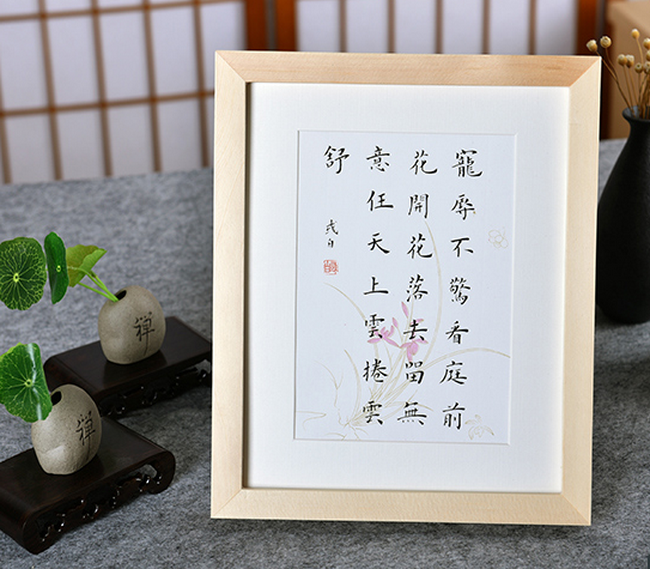 寵辱不驚看庭前
花開花落去留無
意任天上雲捲雲
舒
禅
禅